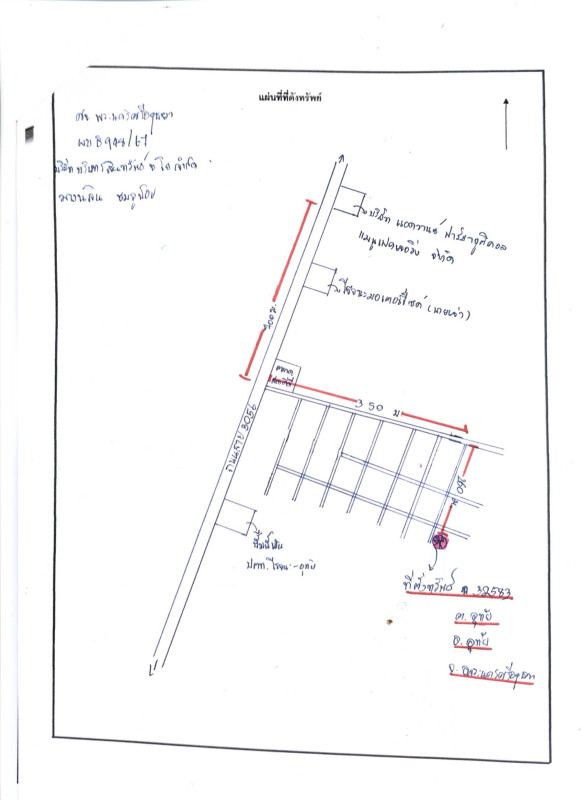 แผนที่ที่ตั้งทรัพย์
ศาล พระนครศรีอยุธยา
ผบ B948/67
บริษัท บริหารสินทรัพย์ จำกัด
บริษัท แอดวานซ์ ฟาร์มาซูติคอล
แมนูแฟคเจอริ่ง จำกัด
โรจนะมอเตอร์ไซค์
ตลาด
700 ม.
350 ม
ถนนสาย 3056
160 ม
ปั๊มน้ำมัน
ปตท. โรจนะ-อุทัย
ที่ตั้งทรัพย์ ฉ. 32583
ต. อุทัย
อ. อุทัย
จ. พระนครศรีอยุธยา